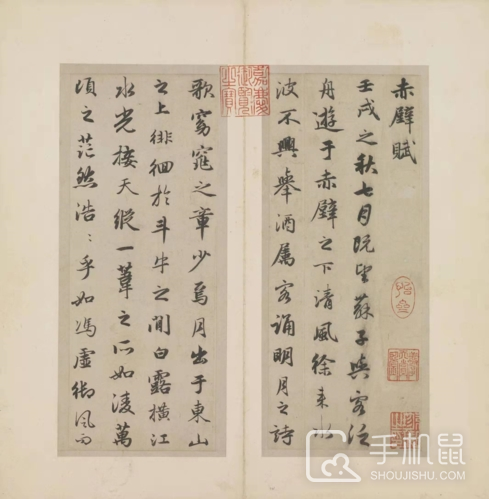 赤壁賦
壬戌之秋七月既望蘇子與客泛
舟遊于赤壁之下清風徐來水
波不興舉酒屬客誦明月之詩
歌窈窕之章少焉月出于東山
之上徘徊於斗牛之間白露橫江
水光接天縱一葦之所如淩萬
頃之茫然浩〻乎如馮虛御風而
手机鼠
SHOUJISHU.COM